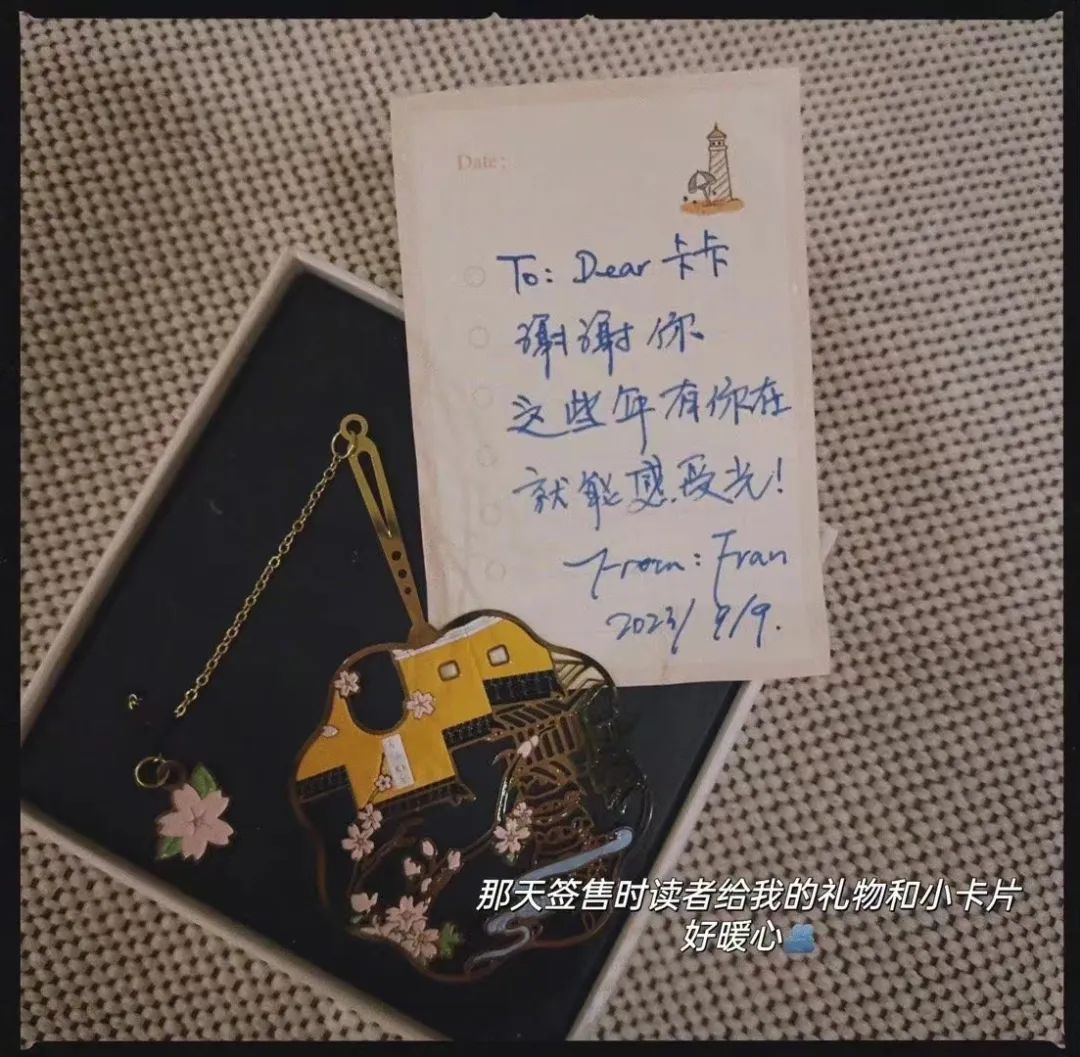 Date:
To: Dear 卡卡
谢谢你
这些年有你在
就能感受光!
From: Fran
2023/9/9.
那天签售时读者给我的礼物和小卡片
好暖心